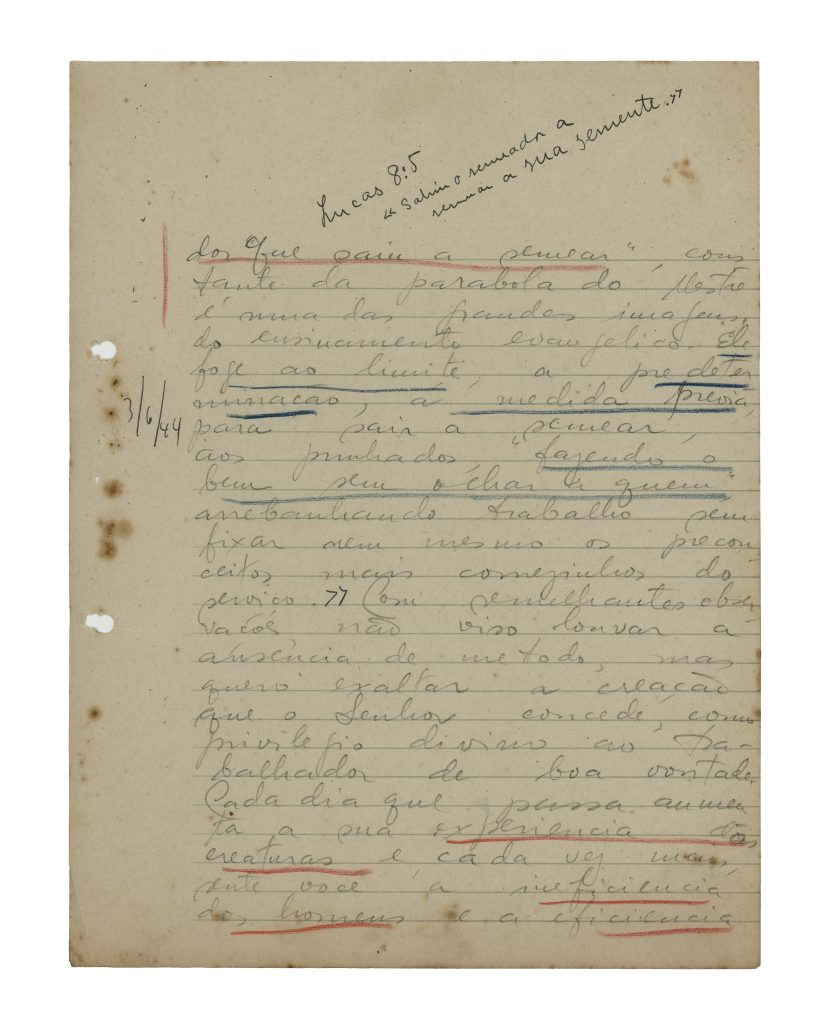 Lucas 8:5
"Sahiu o semeador a
semear a sua semente."
dor que saiu a semear", cons
tante da parabola do Mestre
é numa das grandes imagens
do ensinamento evangelico. Ele
foge ao limite, a pre deter
minacão, á medida previa,
para sair a semear,
aos punhados, "fazendo o
bem sem olhar a quem"
arrebanhando trabalho sem
fixar nem mesmo os precon
ceitos mais comezinhos do
serviço.» Com semelhantes obser
vacões, não viso louvar a
ausencia de metodo, mas
quero exaltar a creacão
que o Senhor concede, como
privilegio divino ao tra-
balhador de boa vontade.
Cada dia que passa aumen
ta a sua experiencia das
creaturas e, cada vez mais,
sente você a ineficiencia
dos homens e a eficiencia
3/6/44